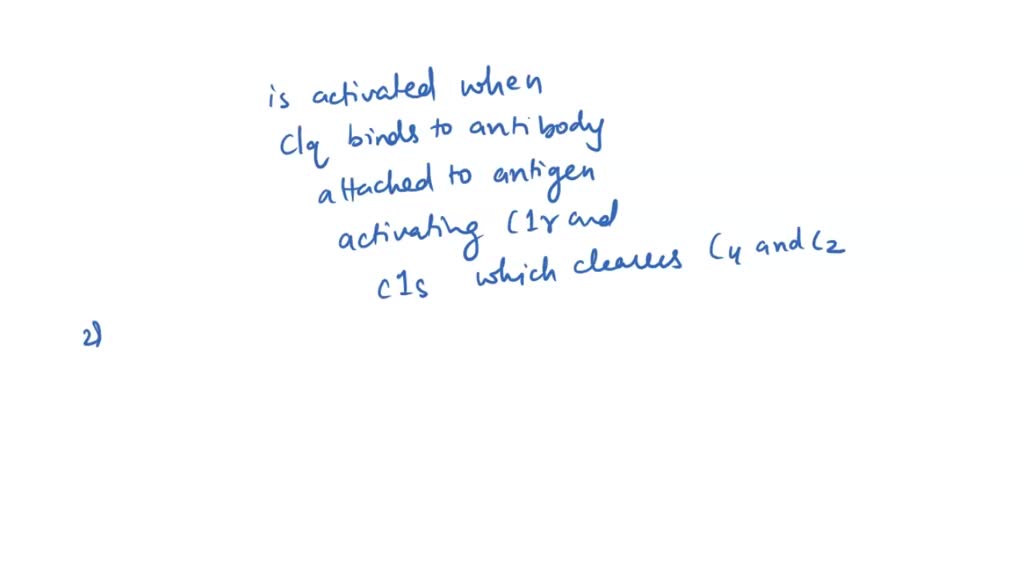 is activated when
C1q binds to antibody
attached to antigen
activating C1r and
C1s which cleaves C4 and C2
2)